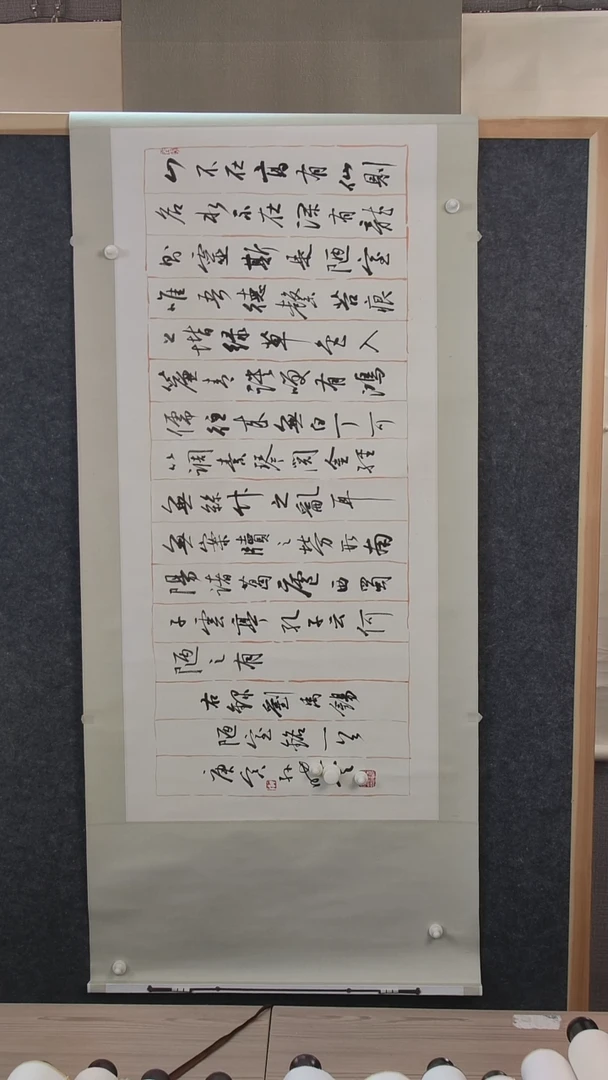 山不在高有仙則
名水不在深有龍
則靈斯是陋室
惟吾德馨苔痕
上階綠草色入
簾青談笑有鴻
儒往來無白丁可
以調素琴閱金經
無絲竹之亂耳
無案牘之勞形南
陽諸葛廬西蜀
子雲亭孔子云何
陋之有
右錄劉禹錫
陋室銘一
庚寅